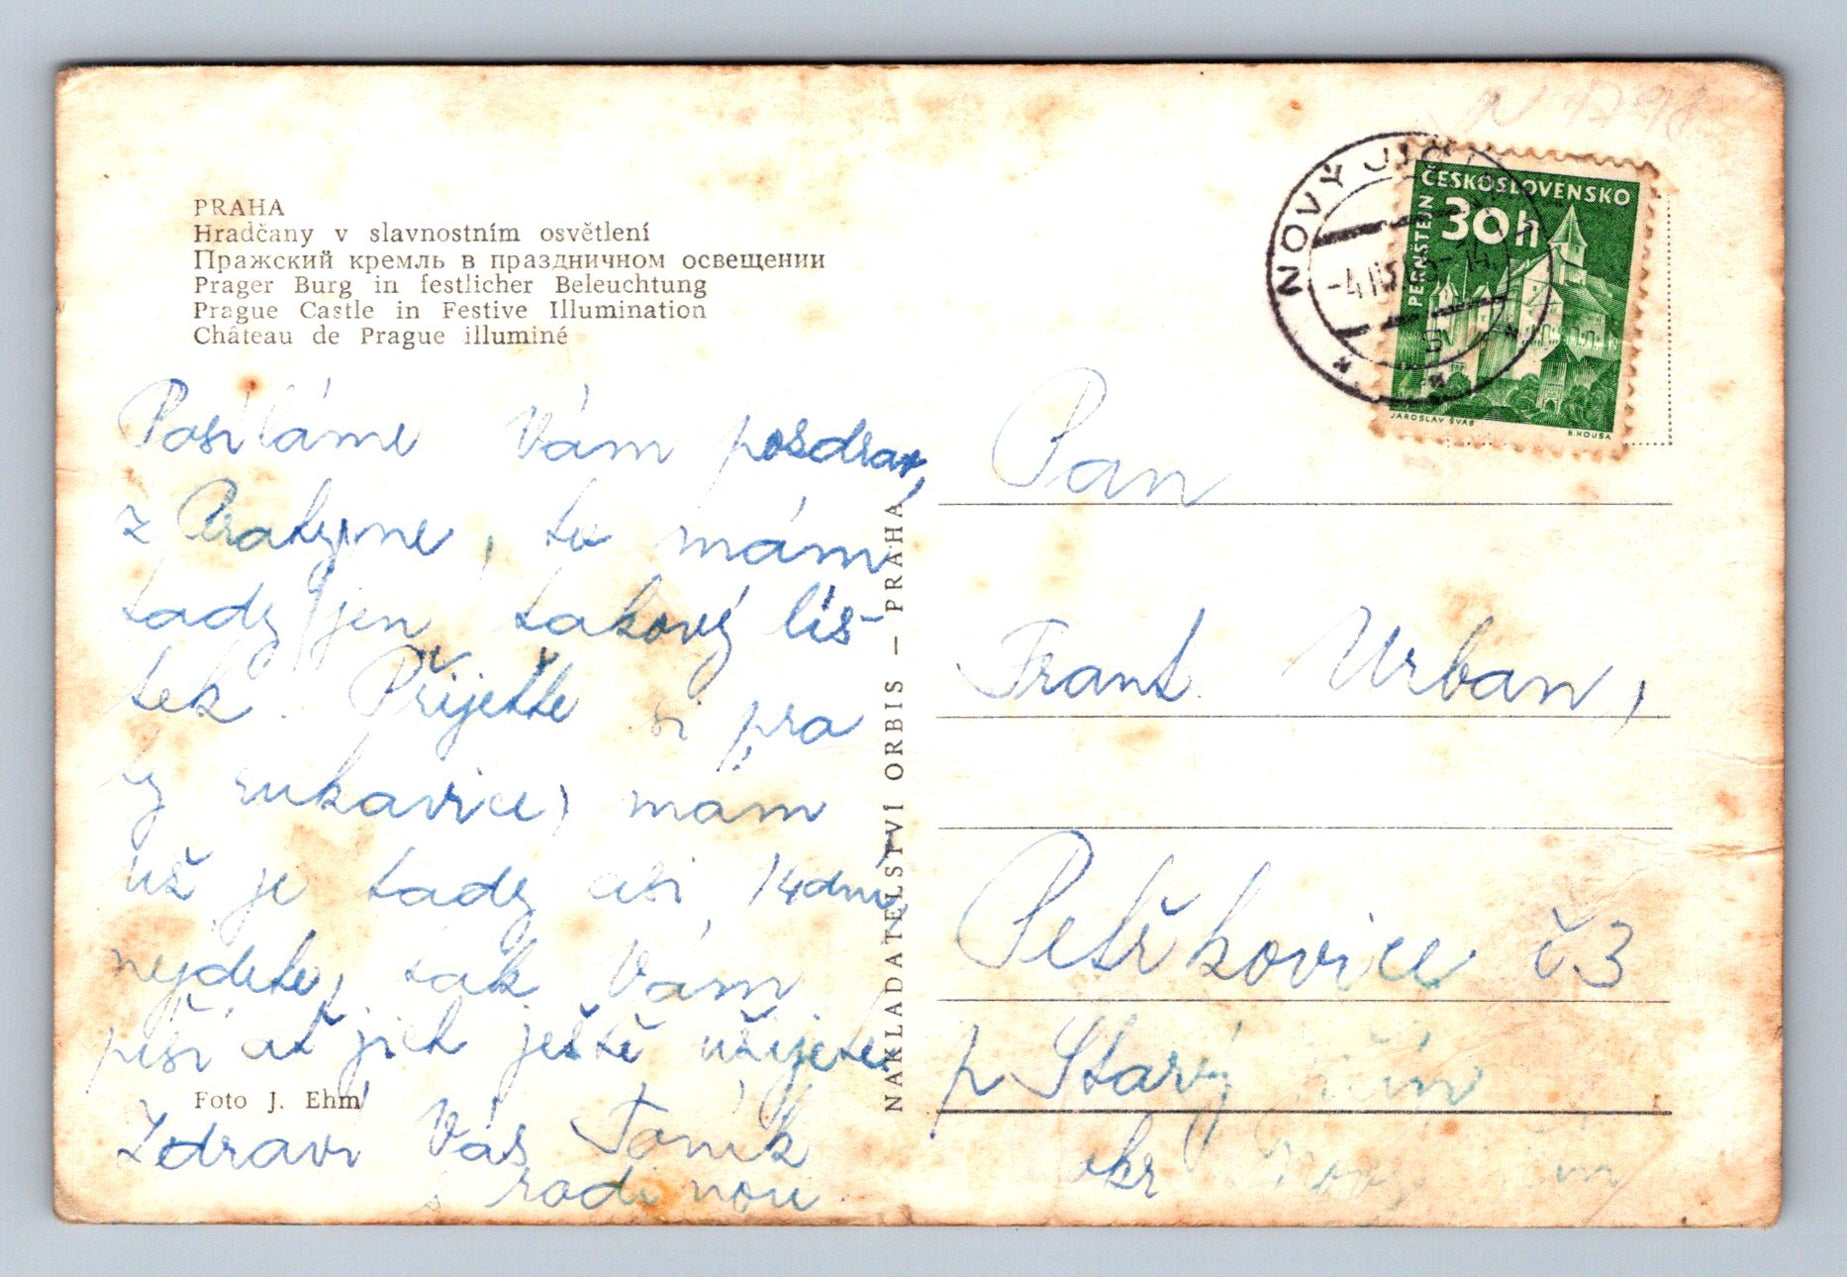 PRAHA
Hradčany v slavnostním osvětlení
Пражский кремль в праздничном освещении
Prager Burg in festlicher Beleuchtung
Prague Castle in Festive Illumination
Château de Prague illuminé
Posíláme Vám pozdrav
z , tu mám
tady jen takový lís-
tek. Přijeďte si pro
ty rukavice, mám
už je tady asi 14 dní,
nejdete, tak Vám
píši ať jich ještě užijete.
Foto J. Ehm
Zdraví Vás Toník
s rodinou
NAKLADATELSTVÍ ORBIS — PRAHA
NOVÝ
ČESKOSLOVENSKO
30h
PERNŠTEJN
JAROSLAV ŠVÁB
B. HOUSA
Pan
Frant. Urban,
Petřkovice č 3
p Starý Jičín
okr Nový Jičín